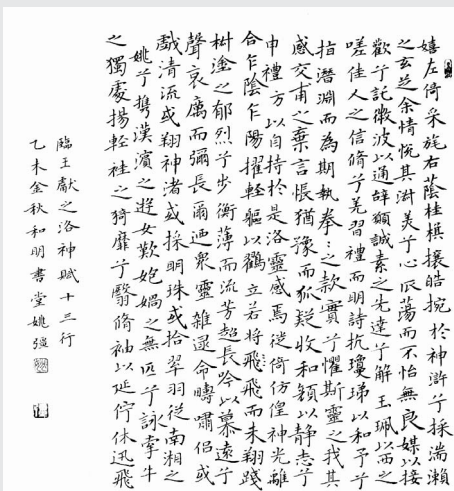 嬉左倚采旄右蔭桂棋攘皓捥於神滸兮採湍瀨
之玄芝余情悅其淑美兮心振蕩而不怡無良媒以接
歡兮託微波以通辭願誠素之先達兮解玉珮以要之
嗟佳人之信脩兮羌習禮而明詩抗瓊珶以和予兮
指潛淵而為期執拳〻之款實兮懼斯靈之我其
感交甫之棄言悵猶豫而狐疑收和顏以靜志兮
申禮方以自持於是洛靈感焉徙倚仿偟神光離
合乍陰乍陽擢輕軀以鶴立若將飛飛而未翔踐
椒塗之郁烈兮步衡薄而流芳超長吟以慕遠兮
聲哀厲而彌長爾迺眾靈雜遝命疇嘯侶或
戲清流或翔神渚或採明珠或拾翠羽從南湘之
姚兮攜漢濱之遊女歎匏媧之無匹兮詠牽牛
之獨處揚輕袿之猗靡兮翳脩袖以延佇休迅飛
臨王獻之洛神賦十三行
乙未金秋和明書堂姚強